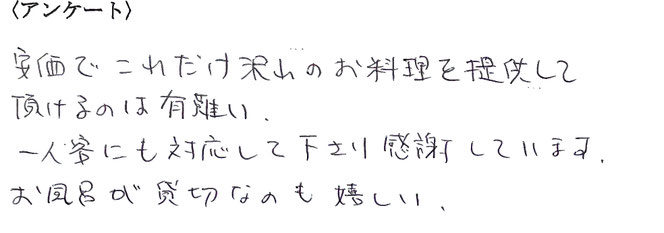 〈アンケート〉
安価でこれだけ沢山のお料理を提供して
頂けるのは有難い.
一人客にも対応して下さり感謝しています.
お風呂が貸切なのも嬉しい.